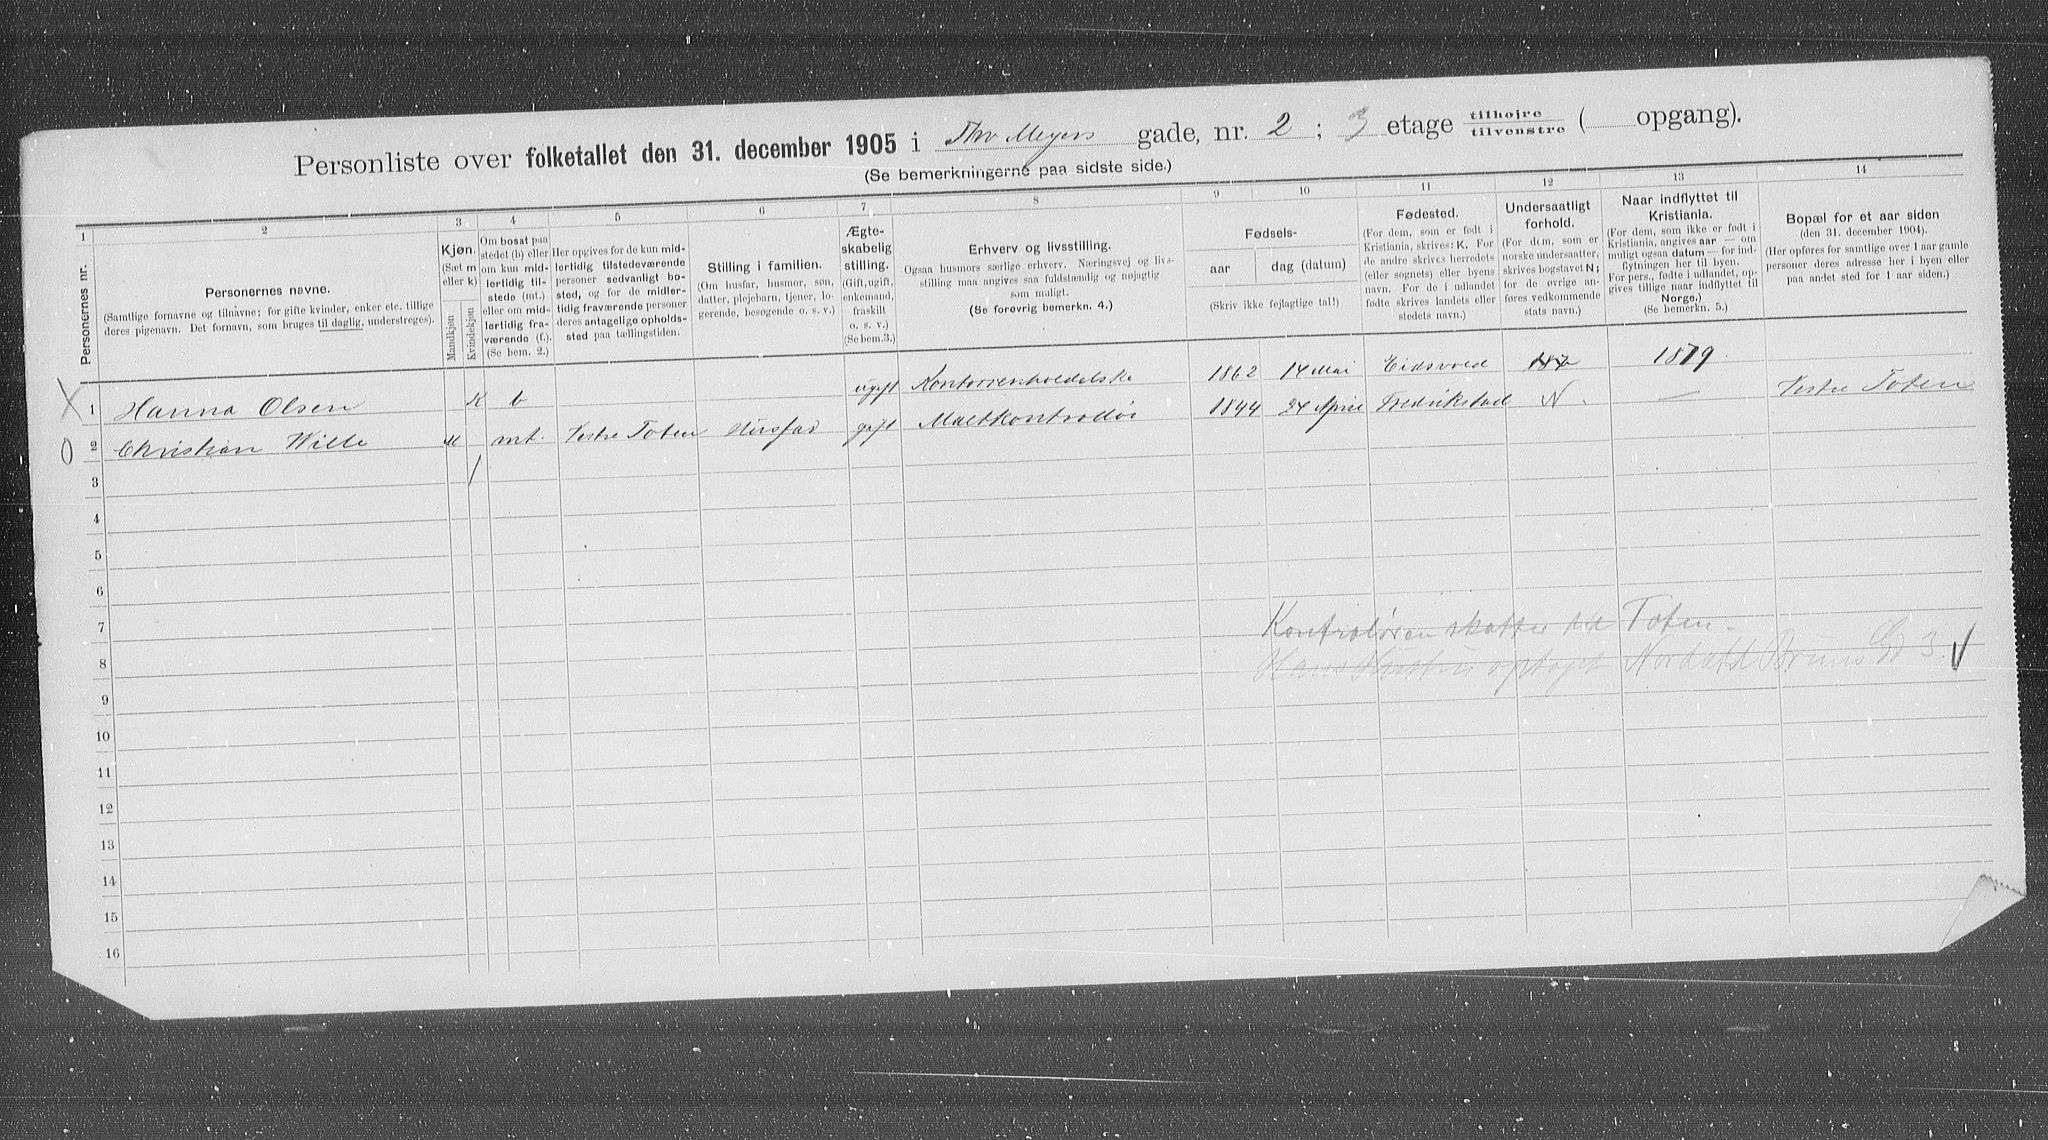 Personliste over folketallet den 31. december 1905 i Thv Meyers gade, nr. 2 ; 3 etage tilhøire / tilvenstre ( opgang).
(Se bemerkningerne paa sidste side.)
1 2 3 4 5 6 7 8 9 10 11 12 13 14
Personernes nr.
Personernes navne.
(Samtlige fornavne og tilnavne; for gifte kvinder, enker etc. tillige
deres pigenavn. Det fornavn, som bruges til daglig, understreges).
Kjøn.
(Sæt m
eller k)
Mandkjøn
Kvindekjøn
Om bosat paa
stedet (b) eller
om kun mid-
lertidig til-
stede (mt.)
eller om mid-
lertidig fra-
værende (f.).
(Se bem. 2.)
Her opgives for de kun mid-
lertidig tilstedeværende
personer sedvanligt bo-
sted, og for de midler-
tidig fraværende personer
deres antagelige opholds-
sted paa tællingstiden.
Stilling i familien.
(Om husfar, husmor, søn,
datter, plejebarn, tjener, lo-
gerende, besøgende o. s. v.)
Ægte-
skabelig
stilling.
(Gift, ugift,
enkemand,
fraskilt
o. s. v.)
(Se bem.3.)
Erhverv og livsstilling.
Ogsaa husmors særlige erhverv. Næringsvej og livs-
stilling maa angives saa fuldstændig og nøjagtig
som muligt.
(Se forøvrig bemerkn. 4.)
Fødsels-
aar
dag (datum)
(Skriv ikke fejlagtige tal!)
Fødested.
(For dem, som er født i
Kristiania, skrives: K. For
de andre skrives herredets
(eller sognets) eller byens
navn. For de i udlandet
fødte skrives landets eller
stedets navn.)
Undersaatligt
forhold.
(For dem, som er
norske undersaatter,
skrives bogstavet N;
for de øvrige an-
føres vedkommende
stats navn.)
Naar indflyttet til
Kristiania.
(For dem, som ikke er født i
Kristiania, angives aar — om
muligt ogsaa datum — for ind-
flytningen her til byen.
For pers., fødte i udlandet, op-
gives tillige naar indflyttet til
Norge.)
(Se bemerkn. 5.)
Bopæl for et aar siden
(den 31. december 1904).
(Her opføres for samtlige over 1 aar gamle
personer deres adresse her i byen eller
paa andet sted for 1 aar siden.)
X 1 Hanna Olsen K b ugift 1862 14 Mai Eidsvold 1879
0 2 Christian Wille M mt. Vestre Toten Husfad gift Maltkontrollør 1844 24 April Fredrikstad N. — Vestre Toten
3
4
5
6
7 Kontroløren skatter til Toten.
8 optaget Nordahl Bruns Gd 3. √
9
10
11
12
13
14
15
16